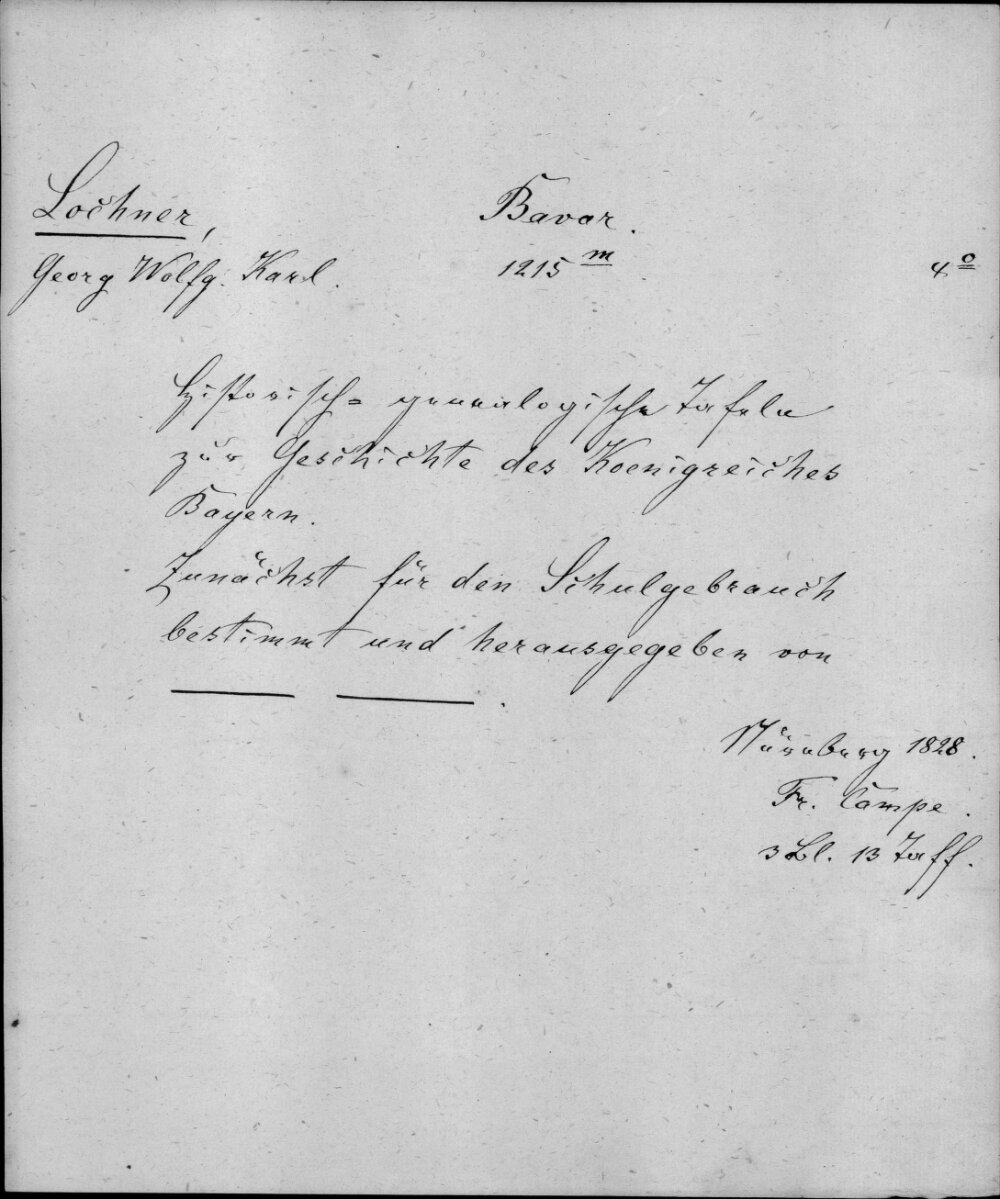 Lochner,
Bavar.
Georg Wolfg. Karl.
1215 m
4o
Historisch= genealogische Tafeln
zur Geschichte des Koenigreiches
Bayern.
Zunächst für den Schulgebrauch
bestimmt und herausgegeben von
Nürnberg 1828.
Fr. Campe.
3 Bl. 13 Taff.